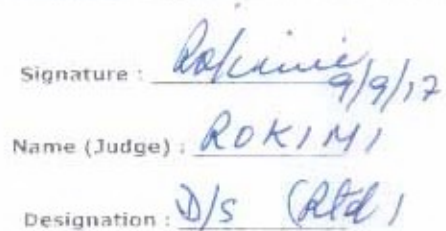 Signature : Rokimi 9/9/17
Name (Judge) : ROKIMI
Designation : D/S (Rtd)